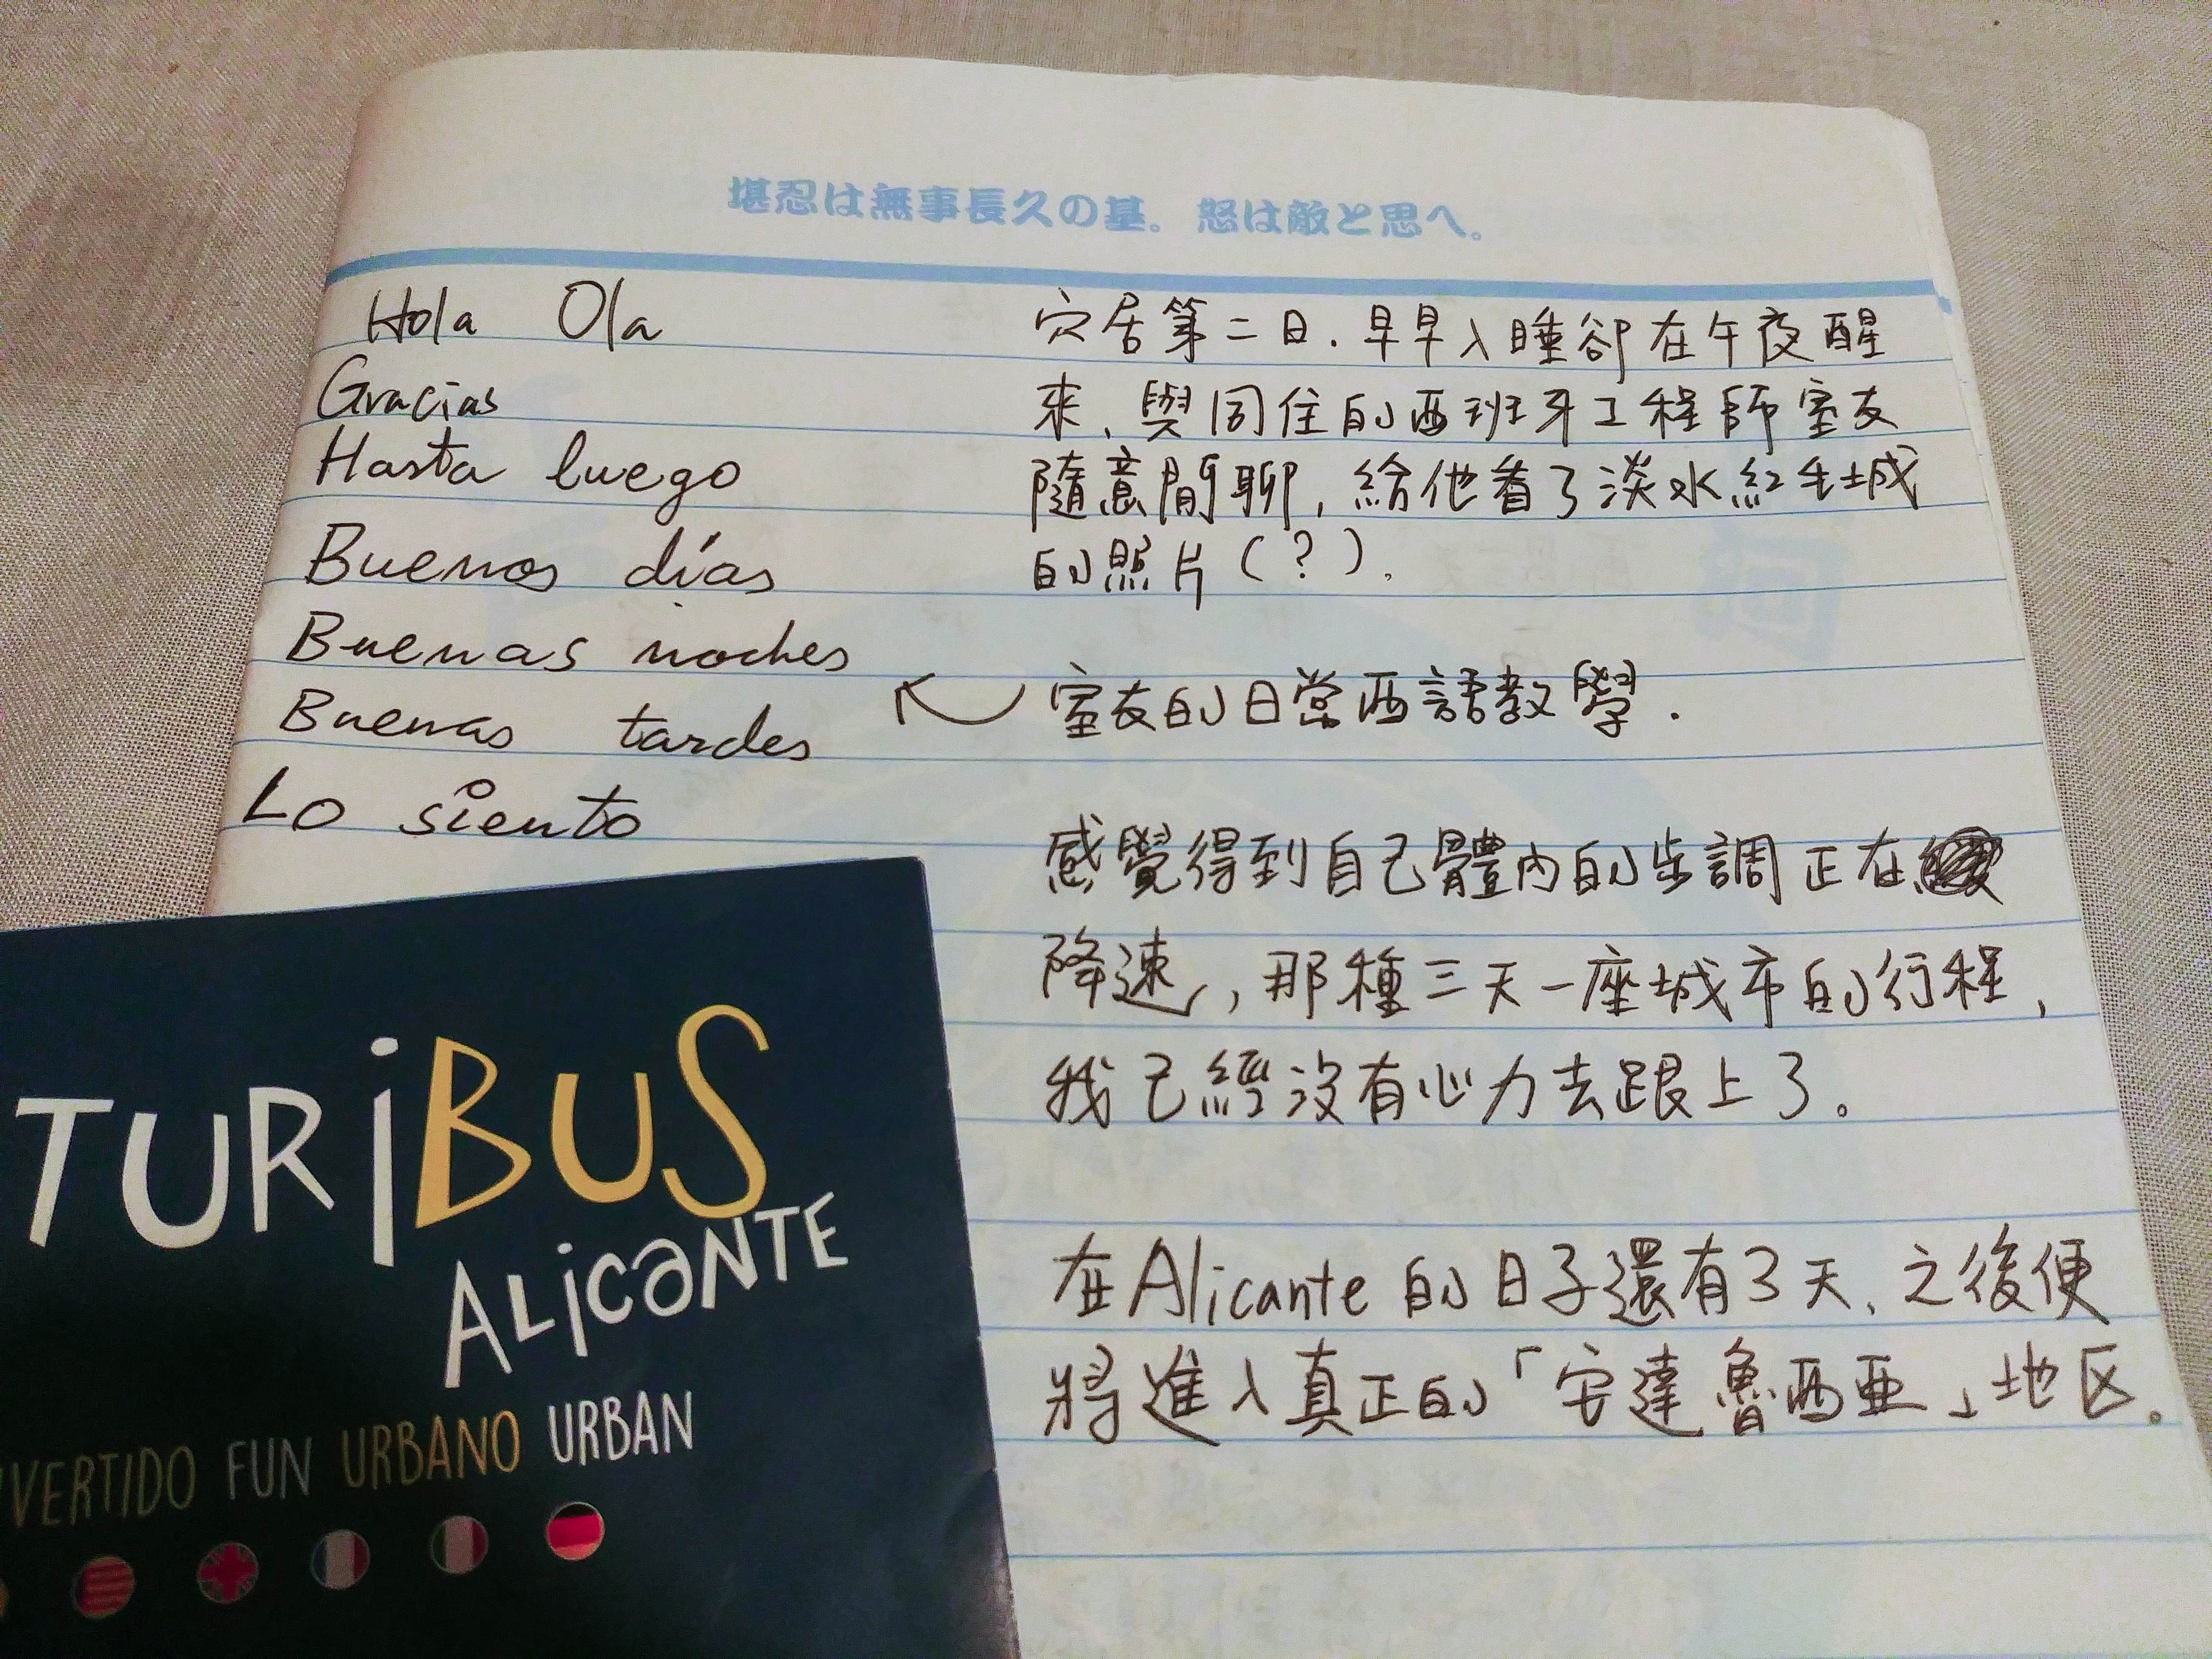 堪忍は無事長久の基。怒は敵と思へ。
Hola Ola
Gracias
Hasta luego
Buenos días
Buenas noches
Buenas tardes
Lo siento
穴居第二日.早早入睡卻在午夜醒
來、與同住的西班牙工程師室友
隨意閒聊,給他看了淡水紅毛城
的照片(?).
室友的日常西語教學.
感覺得到自己體內的步調正在
降速,那種三天一座城市的行程,
我已經沒有心力去跟上了。
在Alicante的日子還有3天、之後便
將進入真正的「安達魯西亜」地区。
TURiBUS
ALiCANTE
VERTIDO FUN URBANO URBAN